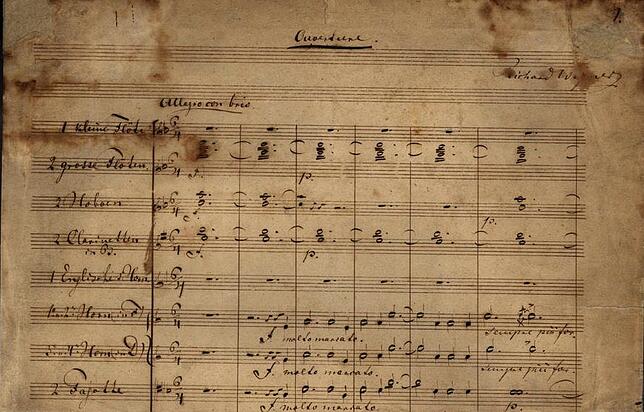 1.
Ouverture.
Richard Wagner
Allegro con brio.
1 kleine Flöte
2 grosse Flöten.
f. p.
2 Hoboen
f. p.
2 Clarinetten
in B.
f. p.
1 Englisches Horn
Horn in F
f. molto marcato. sempre più for.
Horn in D
f. molto marcato. sempre più for.
2 Fagotte
f. molto marcato.